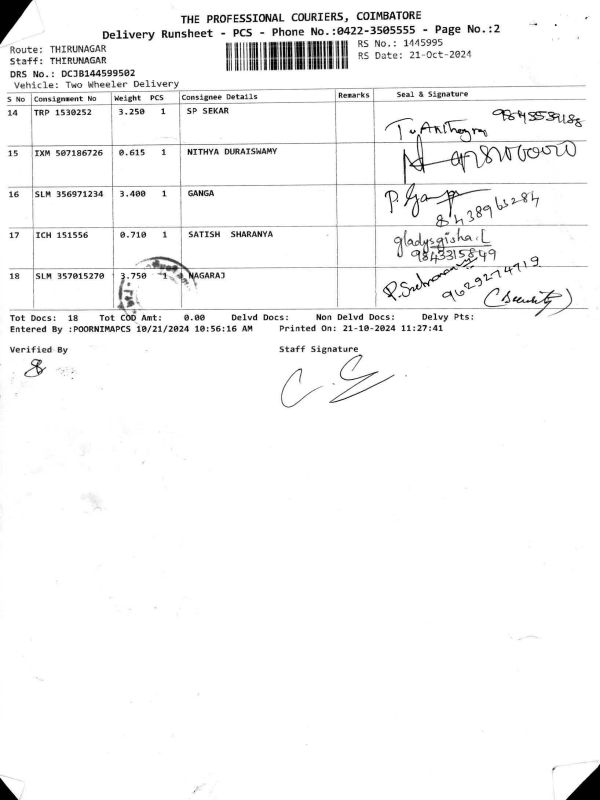 THE PROFESSIONAL COURIERS, COIMBATORE
Delivery Runsheet - PCS - Phone No.:0422-3505555 - Page No.:2
Route: THIRUNAGAR
RS No.: 1445995
Staff: THIRUNAGAR
RS Date: 21-Oct-2024
DRS No.: DCJB144599502
Vehicle: Two Wheeler Delivery
S No Consignment No Weight PCS Consignee Details Remarks Seal & Signature
14 TRP 1530252 3.250 1 SP SEKAR
15 IXM 507186726 0.615 1 NITHYA DURAISWAMY
16 SLM 356971234 3.400 1 GANGA P. Ganga
8438963284
17 ICH 151556 0.710 1 SATISH SHARANYA gladysgisha.L
9843315849
18 SLM 357015270 3.750 1 NAGARAJ
9629274719
(Security)
Tot Docs: 18 Tot COD Amt: 0.00 Delvd Docs: Non Delvd Docs: Delvy Pts:
Entered By :POORNIMAPCS 10/21/2024 10:56:16 AM Printed On: 21-10-2024 11:27:41
Verified By Staff Signature